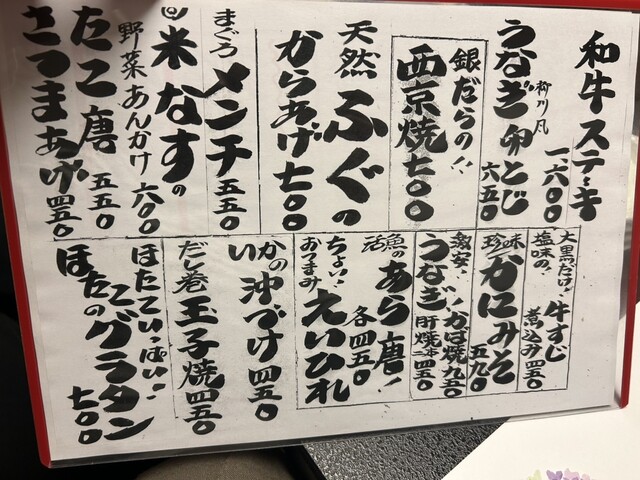 和牛ステーキ
一、六〇〇
うなぎ卵とじ
柳川風
六五〇
銀だらの!!
西京焼七〇〇
天然ふぐの
からあげ七〇〇
まぐろ
メンチ五五〇
米なすの
野菜あんかけ六〇〇
たこ唐五五〇
さつまあげ四五〇
大黒だけ!
塩味の!牛すじ
煮込み四五〇
珍味
かにみそ
五九〇
激安!!かば焼九五〇
うなぎ肝焼一本四五〇
活魚のあら唐!
各四五〇
ちょい!
おつまみえいひれ
いかの沖づけ四五〇
だし巻玉子焼四五〇
ほたていっぱい!
ほたてのグラタン
七〇〇